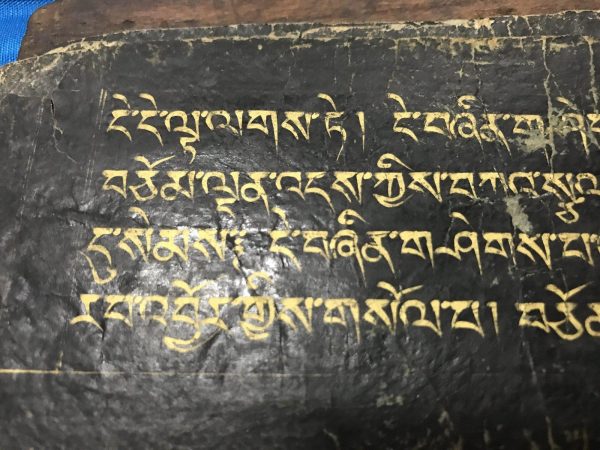 དེ་དེ་ལྟ་ལགས་ཏེ། དེ་བཞིན་གཤེ
བཅོམ་ལྡན་འདས་ཀྱིས་བཀའ་སྩལ
དུ་སེམས། དེ་བཞིན་གཤེགས་པ
རབ་འབྱོར་གྱིས་གསོལ་པ། བཅོམ